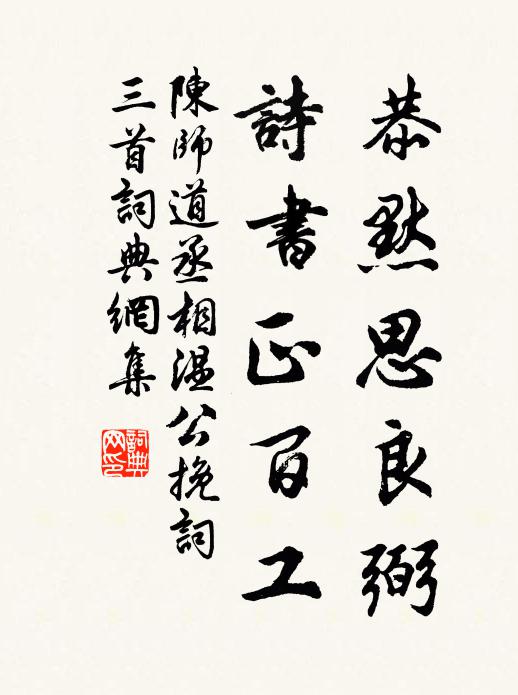 恭默思良弼
詩書正百工
陳師道丞相温公挽詞
三首詞典網集
詞典网印